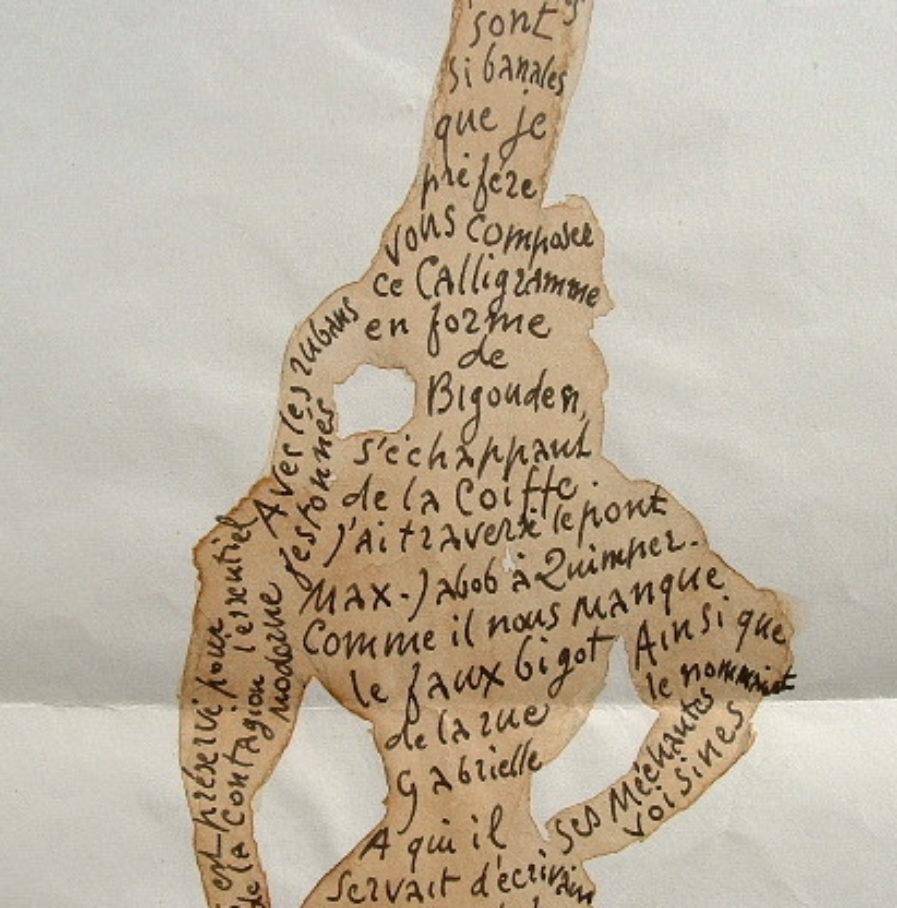 sont
si banales
que je
préfére
vous composer
ce Calligramme
en forme
de
Bigouden,
s'échappant
de la Coiffe.
Avec les rubans
festonnés
J'ai traversé le pont
Max-Jabob à Quimper.
Comme il nous manque
le faux bigot
de la rue
Gabrielle
Ainsi que
le nommaient
ses Méchantes
voisines
A qui il
servait d'écrivain
est préservé pour
l'essentiel
de la contagion
moderne